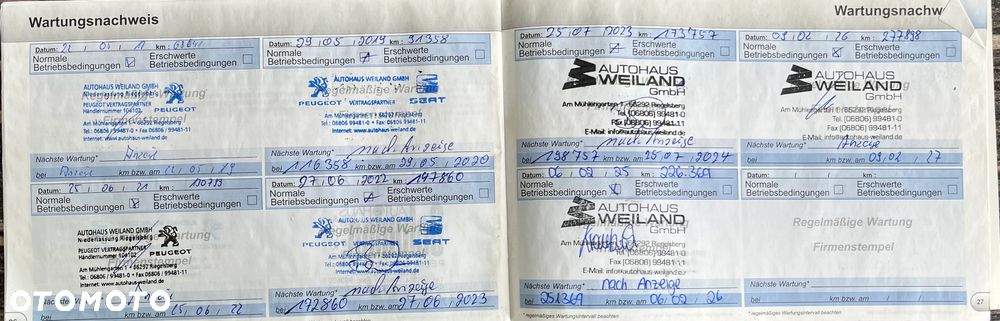 Wartungsnachweis
Datum: 22 / 05 / 1 km:
Normale Betriebsbedingungen
Erschwerte Betriebsbedingungen
AUTOHAUS WEILAND GMBH
Niederlassung Riegelsberg
PEUGEOT VERTRAGSPARTNER
Händlernummer 104102
Am Mühlengarten 1 • 66292 Riegelsberg
Tel.: 06806 / 99481-0 • Fax 06806 / 99481-11
Internet: www.autohaus-weiland.de
PEUGEOT
Regelmäßige Wartung
Firmenstempel
Nächste Wartung*
bei km bzw. am 22 / 05 / 19
Datum: 29 / 05 / 2019 km: 91358
Normale Betriebsbedingungen
Erschwerte Betriebsbedingungen
AUTOHAUS WEILAND GMBH
Regelmäßige Wartung
PEUGEOT VERTRAGSPARTNER SEAT
Am Mühlengarten 1 • 66292 Riegelsberg
Tel.: 06806 / 99481-0 • Fax 06806 / 99481-11
Internet: www.autohaus-weiland.de
Nächste Wartung* nach Anzeige
bei 116358 km bzw. am 29 / 05 / 2020
Datum: 25 / 06 / 21 km:
Normale Betriebsbedingungen
Erschwerte Betriebsbedingungen
AUTOHAUS WEILAND GMBH
Niederlassung Riegelsberg
PEUGEOT VERTRAGSPARTNER
Händlernummer 104102
Am Mühlengarten 1 • 66292 Riegelsberg
Tel.: 06806 / 99481-0 • Fax 06806 / 99481-11
Internet: www.autohaus-weiland.de
PEUGEOT
Nächste Wartung*
bei km bzw. am 25 / 06 / 22
Datum: 27 / 06 / 2022 km: 147860
Normale Betriebsbedingungen
Erschwerte Betriebsbedingungen
AUTOHAUS WEILAND GMBH
Regelmäßige Wartung
PEUGEOT VERTRAGSPARTNER SEAT
Am Mühlengarten 1 • 66292 Riegelsberg
Tel.: 06806 / 99481-0 • Fax 06806 / 99481-11
Internet: www.autohaus-weiland.de
Nächste Wartung* nach Anzeige
bei 172860 km bzw. am 27 / 06 / 2023
OTOMOTO
Wartungsnachw
Datum: 25 / 07 / 2023 km: 173757
Normale Betriebsbedingungen
Erschwerte Betriebsbedingungen
AUTOHAUS
WEILAND
GmbH
Am Mühlengarten 1 • 66292 Riegelsberg
Tel (06806) 99481-0
Fax (06806) 99481-11
E-Mail: info@autohaus-weiland.de
Nächste Wartung* nach Anzeige
bei 198757 km bzw. am 25 / 07 / 2024
Datum: 09 / 02 / 26 km: 277898
Normale Betriebsbedingungen
Erschwerte Betriebsbedingungen
AUTOHAUS
WEILAND
GmbH
Nächste Wartung* Anzeige
bei km bzw. am 09 / 02 / 27
Datum: 06 / 02 / 25 km: 226.369
Normale Betriebsbedingungen
Erschwerte Betriebsbedingungen
AUTOHAUS
WEILAND
GmbH
Tel (06806) 99481-0
Fax (06806) 99481-11
E-Mail: info@autohaus-weiland.de
Nächste Wartung* nach Anzeige
bei 251369 km bzw. am 06 / 02 / 26
Datum: / / km:
Normale Betriebsbedingungen
Erschwerte Betriebsbedingungen
Regelmäßige Wartung
Firmenstempel
Nächste Wartung*
bei km bzw. am / /
* regelmäßiges Wartungsintervall beachten
* regelmäßiges Wartungsintervall beachten
27